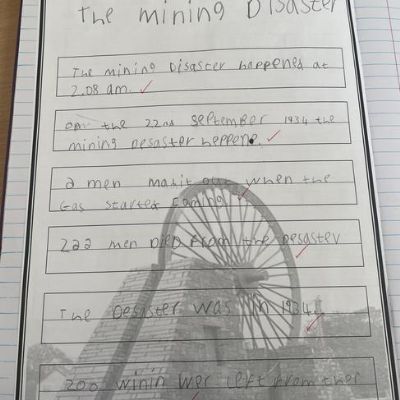 The mining DISaster
The mining Disaster happened at
2.08 am.
on the 22nd september 1934 the
mining desaster happene.
2 men mak it out when the
Gas started coming
222 men Died from the desaster
The Desaster was in 1934.
200 winin wer left from ther